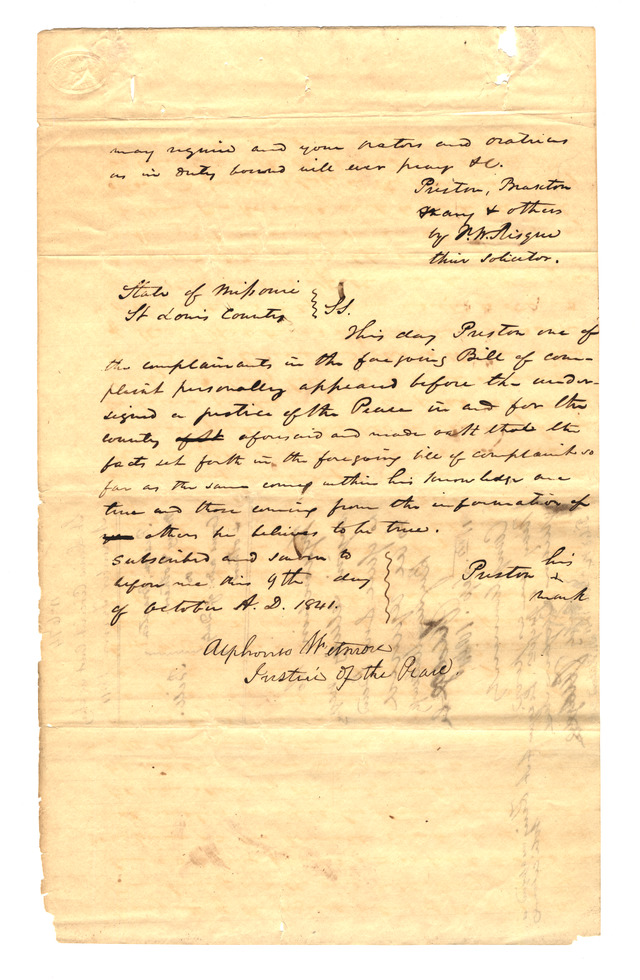 may require and your orators and oratrices
as in duty bound will ever pray &C.
Preston, Braxton
Mary & others
by F.W. Risque
their solicitor.
State of Missouri
St Louis County } SS.
This day Preston one of
the complainants in the foregoing Bill of com-
plaint personally appeared before the under-
signed a justice of the Peace in and for the
county aforesaid and made oath that the
facts set forth in the foregoing bill of complaint so
far as the same comes within his knowledge are
true and those coming from the information of
others he believes to be true.
Subscribed and sworn to
before me this 9th day
of October A.D. 1841.
Preston his
+
mark
Alphonso Wetmore
Justice of the Peace.